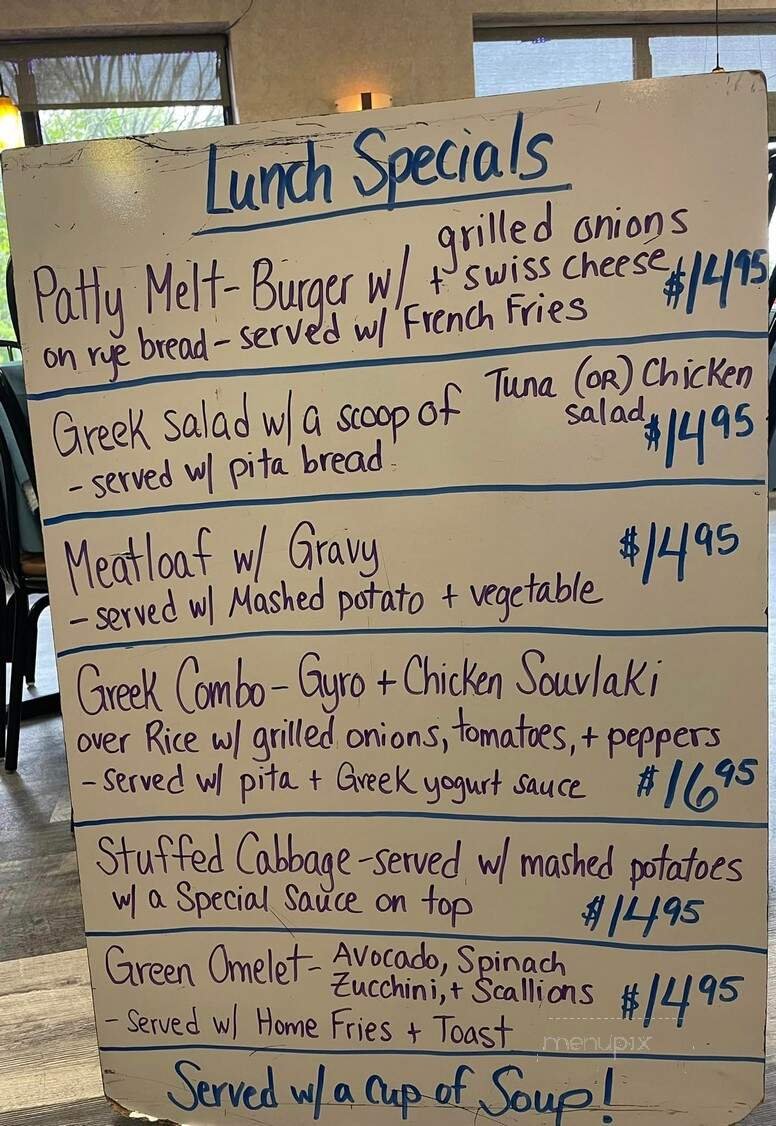 Lunch Specials
grilled onions
Patty Melt- Burger w/ + swiss cheese $14.95
on rye bread - served w/ French Fries
Greek salad w/ a scoop of Tuna (OR) Chicken
salad $14.95
- served w/ pita bread
Meatloaf w/ Gravy $14.95
- served w/ Mashed potato + vegetable
Greek Combo - Gyro + Chicken Souvlaki
over Rice w/ grilled onions, tomatoes, + peppers
- served w/ pita + Greek yogurt sauce $16.95
Stuffed Cabbage - served w/ mashed potatoes
w/ a Special Sauce on top $14.95
Green Omelet - Avocado, Spinach
Zucchini, + Scallions $14.95
- Served w/ Home Fries + Toast
menupix
Served w/ a Cup of Soup!